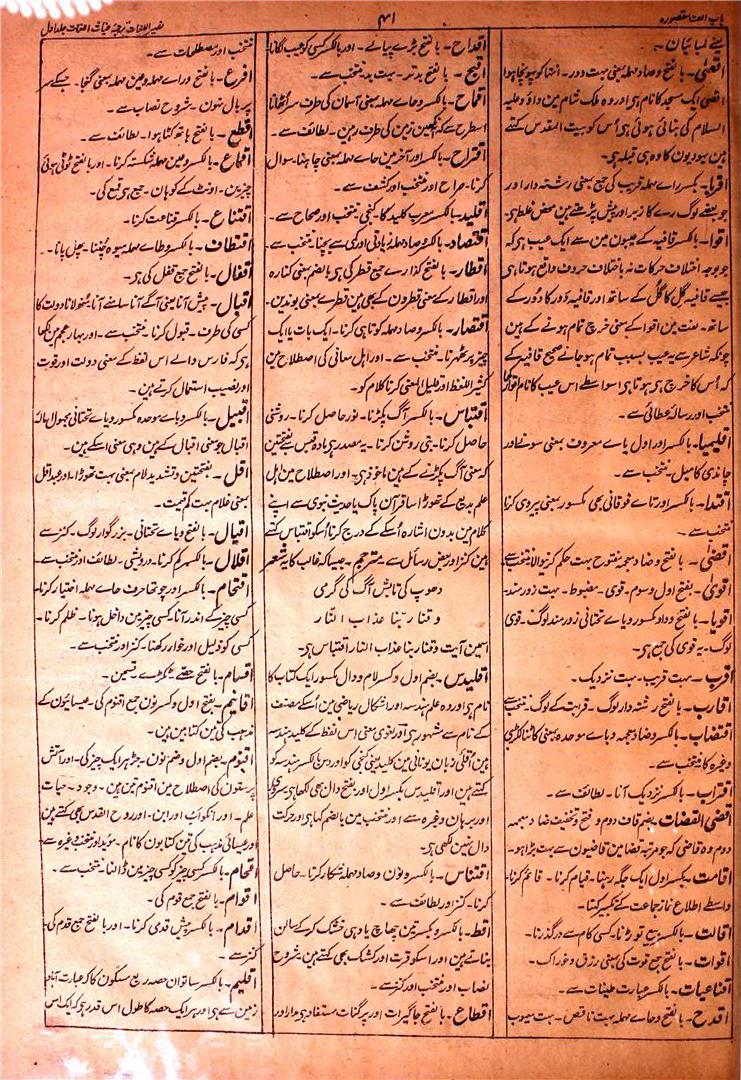 باب الف مقصورہ
۴۱
نصیر اللغات ترجمۂ غیاث اللغات جلد اول
یعنے لسا بیان۔
اقصیٰ۔ بالفتح وصاد مہملہ بمعنی بہت دور۔ انتہا کو پہونچا ہوا
اقصیٰ ایک مسجد کا نام ہی اور وہ ملک شام مین داؤد علیہ
السلام کی بنائی ہوئی ہی اُس کو بیت المقدس کہتے
ہین یہودیون کا وہ ہی قبلہ ہی۔
اقربا۔ بکسر راے مہملہ قریب کی جمع بمعنی رشتہ دار اور
جو بعضے لوگ رے کا زبر اور پیش پڑھتے ہین محض غلط ہی۔
اقوا۔ بالکسر قافیہ کے عیبون مین سے ایک عیب ہی کہ
جو بوجہ اختلاف حرکات نہ باختلاف حروف واقع ہوتا ہی
جیسے قافیہ گل کا گُل کے ساتھ اور قافیہ دَور کا دُور کے
ساتھ۔ لغت مین اقوا کے معنی خرچ تمام ہونے کے ہین
چونکہ شاعر سے یہ عیب بسبب تمام ہو جانے صحیح قافیہ کے
کہ اُس کا خرچ ہی ہوتا ہی اسواسطے اس عیب کا نام اقوا رکھا
منتخب اور رسالہ عطائی سے۔
اقلیمیا۔ بالکسر اور اول یاے معروف بمعنی سونے اور
چاندی کا میل۔ منتخب سے۔
اقتدا۔ بالکسر اور تاے فوقانی بھی مکسور بمعنی پیروی کرنا
منتخب سے۔
اقضیٰ۔ بالفتح وضاد معجمہ مفتوح بہت حکم کرنیوالا منتخب سے
اقویٰ۔ بفتح اول و سوم۔ قوی۔ مضبوط۔ بہت زورمند۔
اقویا۔ بالفتح و واو مکسور ویاے تحتانی زورمند لوگ۔ قوی
لوگ۔ یہ قوی کی جمع ہی۔
اقرب۔ بہت قریب۔ بہت نزدیک۔
اقارب۔ بالفتح رشتہ دار لوگ۔ قرابت کے لوگ۔ منتخب سے
اقتضاب۔ بالکسر وضاد معجمہ و باے موحدہ بمعنی کاٹنا لکڑی
وغیرہ کا منتخب سے۔
اقتراب۔ بالکسر نزدیک آنا۔ لطائف سے۔
اقضی القضات۔ بضم قاف دوم و فتح وتخفیف ضاد معجمہ
دوم وہ قاضی کہ جو مرتبہ قضا مین قاضیون سے بہت بڑا ہو۔
اقامت۔ بکسر اول ایک جگہ رہنا۔ قیام کرنا۔ قائم کرنا۔
واسطے اطلاع نماز جماعت کے تکبیر کہنا۔
اقالت۔ بالکسر بیع توڑنا۔ کسی کام سے درگذرنا۔
اقوات۔ بالفتح جمع قوت کی بمعنی رزق و خوراک۔
اقناعیات۔ بالکسر عبارت ظنیات سے۔
اقدح۔ بالفتح وحاے مہملہ بہت ناقص۔ بہت معیوب
اقداح۔ بالفتح بڑے پیالے۔ اور بالکسر کسی کو عیب لگانا
اقبح۔ بالفتح بدتر۔ بہت بد منتخب سے۔
اقماح۔ بالکسر وحاے مہملہ بمعنی آسمان کی طرف سر اُٹھانا
اسطرح سے کہ آنکھین زمین کی طرف رہین۔ لطائف سے۔
اقتراح۔ بالکسر اور آخر مین حاے مہملہ بمعنی چاہنا۔ سوال
کرنا۔ صراح اور منتخب اور کشف سے۔
اقلید۔ بالکسر معرب کلید کا۔ کنجی۔ منتخب اور صحاح سے۔
اقتصاد۔ بالکسر وصاد مہملہ زیادتی اور کمی سے بچنا منتخب سے
اقطار۔ بالفتح کنارے جمع قطر کی ہی بالضم بمعنی کنارہ
اور اقطار کے معنی قطرون کے بھی ہین قطرے بمعنی بوندین۔
اقتصار۔ بالکسر وصاد مہملہ کوتاہی کرنا۔ ایک بات یا ایک
چیز پر ٹھہرنا۔ منتخب سے۔ اور اہل معانی کی اصطلاح مین
کثیر اللفظ اور قلیل المعنی کرنا کلام کو۔
اقتباس۔ بالکسر آگ پکڑنا۔ نور حاصل کرنا۔ روشنی
حاصل کرنا۔ بتی روشن کرنا۔ یہ مصدر ہی مادہ قبس بفتحتین
کہ معنی آگ پکڑنے کے ہین ماخوذ ہی۔ اور اصطلاح مین اہل
علم بدیع کے تھوڑا سا قرآن پاک یا حدیث نبوی سے اپنے
کلام مین بدون اشارہ اُسکے کے درج کرنا اُسکو اقتباس کہتے
ہین کنز اور بعض رسائل سے۔ مترجم۔ جیسا کہ غالب کا یہ شعر
دھوپ کی تابش آگ کی گرمی
وقنا ربنا عذاب النار
اسمین آیت وقنا ربنا عذاب النار اقتباس ہی۔
اقلیدس۔ بضم اول و کسر لام و دال مکسور ایک کتاب کا
نام ہی اور وہ علم ہندسہ اور اشکال ریاضی مین اُسکے مصنف
کے نام سے مشہور ہی اور لغوی معنی اس لفظ کے کلید ہندسہ
ہین اقلی زبان یونانی مین کلید یعنی کنجی کو اور دس بالکسر ہندسہ کو
کہتے ہین اور اقلیدس بکسر اول اور بفتح دال بھی لکھا ہی سروری
اور برہان وغیرہ سے اور منتخب مین بالضم کہا ہی اور حرکت
دال نہین لکھی ہی۔
اقتناص۔ بالکسر و نون وصاد مہملہ شکار کرنا۔ حاصل
کرنا۔ کنز اور لطائف سے۔
اقط۔ بالکسر و بکسرتین چھاچ یا دہی خشک کرکے سالن
بناتے ہین اور اسکو قرت اور کشک بھی کہتے ہین شروح
نصاب اور منتخب اور کنز سے۔
اقطاع۔ بالفتح جاگیرات اور پرگنات مستفاد ہی مدار اور
منتخب اور مصطلحات سے۔
اقرع۔ بالفتح وراے مہملہ وعین مہملہ بمعنی گنجا۔ جسکے سر
پر بال نہون۔ شروح نصاب سے۔
اقطع۔ بالفتح ہاتھ کٹا ہوا۔ لطائف سے۔
اقماع۔ بالکسر وعین مہملہ شکستہ کرنا۔ اور بالفتح ٹوٹی ہوئی
چیزین۔ اونٹ کے کوہان۔ جمع ہی قمع کی۔
اقتناع۔ بالکسر قناعت کرنا۔
اقتطاف۔ بالکسر وطاے مہملہ میوہ چننا۔ پھل پانا۔
اقفال۔ بالفتح جمع قفل کی ہی۔
اقبال۔ پیش آنا یعنی آگے آنا سامنے آنا۔ متوجہ لانا دولت کا
کسی کی طرف۔ قبول کرنا۔ منتخب سے۔ اور بہار عجم مین لکھا
ہی کہ فارس والے اس لفظ کے معنی دولت اور قوت
اور نصیب استعمال کرتے ہین۔
اقبیل۔ بالکسر و باے موحدہ مکسور ویاے تحتانی مجہول امالہ
اقبال جو معنی اقبال کے ہین وہی معنی اسکے ہین۔
اقل۔ بفتحتین و تشدید لام بمعنی بہت تھوڑا۔ اور عبد اقل
بمعنی غلام بہت کم قیمت۔
اقیال۔ بالفتح ویاے تحتانی۔ بزرگوار لوگ۔ کنز سے
اقلال۔ بالکسر کم کرنا۔ درویشی۔ لطائف اور منتخب سے۔
اقتحام۔ بالکسر اور چوتھا حرف حاے مہملہ اختیار کرنا۔
کسی چیز کے اندر آنا۔ کسی چیز مین داخل ہونا۔ ظلم کرنا۔
کسی کو ذلیل اور خوار رکھنا۔ کنز اور منتخب سے۔
اقسام۔ بالفتح حصّے ٹکڑے۔ قسمین۔
اقانیم۔ بفتح اول و کسر نون جمع اقنوم کی۔ عیسائیون کے
مذہب کی تین کتابین ہین۔
اقنوم۔ بضم اول وضم نون۔ جڑ ہر ایک چیز کی۔ اور آتش
پرستون کی اصطلاح مین اقنوم تین ہین۔ وجود۔ حیات
علم۔ اور انکو اَب اور ابن۔ اور روح القدس بھی کہتے ہین
اور عیسائی مذہب کی تین کتابون کا نام۔ مؤید اور منتخب وغیرہ سے۔
اقحام۔ بالکسر کسی چیز کو کسی چیز مین ڈالنا۔ منتخب سے۔
اقوام۔ بالفتح جمع قوم کی۔
اقدام۔ بالکسر پیش قدمی کرنا۔ اور بالفتح جمع قدم کی۔
کنز سے۔
اقلیم۔ بالکسر ساتوان حصہ ربع مسکون کا کہ عبارت آباد
زمین سے ہی اور ہر ایک حصہ کا طول اس قدر ہی کہ ایک اس